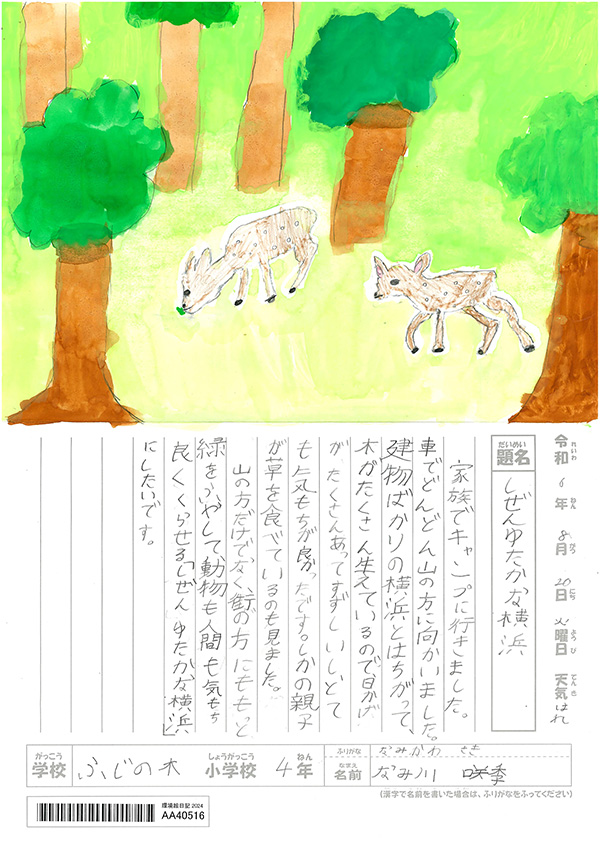 令和6年8月20日火曜日 天気はれ
れいわ ねん がつ にち ようび てんき
だいめい
題名
しぜんゆたかな横浜
家族でキャンプに行きました。
車でどんどん山の方に向かいました。
建物ばかりの横浜とはちがって、
木がたくさん生えているので日かげ
が、たくさんあってすずしいしとて
も気もちが良かったです。しかの親子
が草を食べているのも見ました。
山の方だけでなく、街の方にももっと
緑をふやして、動物も人間も気もち
良くくらせる「しぜんゆたかな横浜」
にしたいです。
がっこう しょうがっこう ねん
学校 ふじの木 小学校 4年
ふりがな なみかわ さき
なまえ
名前 なみ川 咲季
(漢字で名前を書いた場合は、ふりがなをふってください)
環境絵日記 2024
AA40516